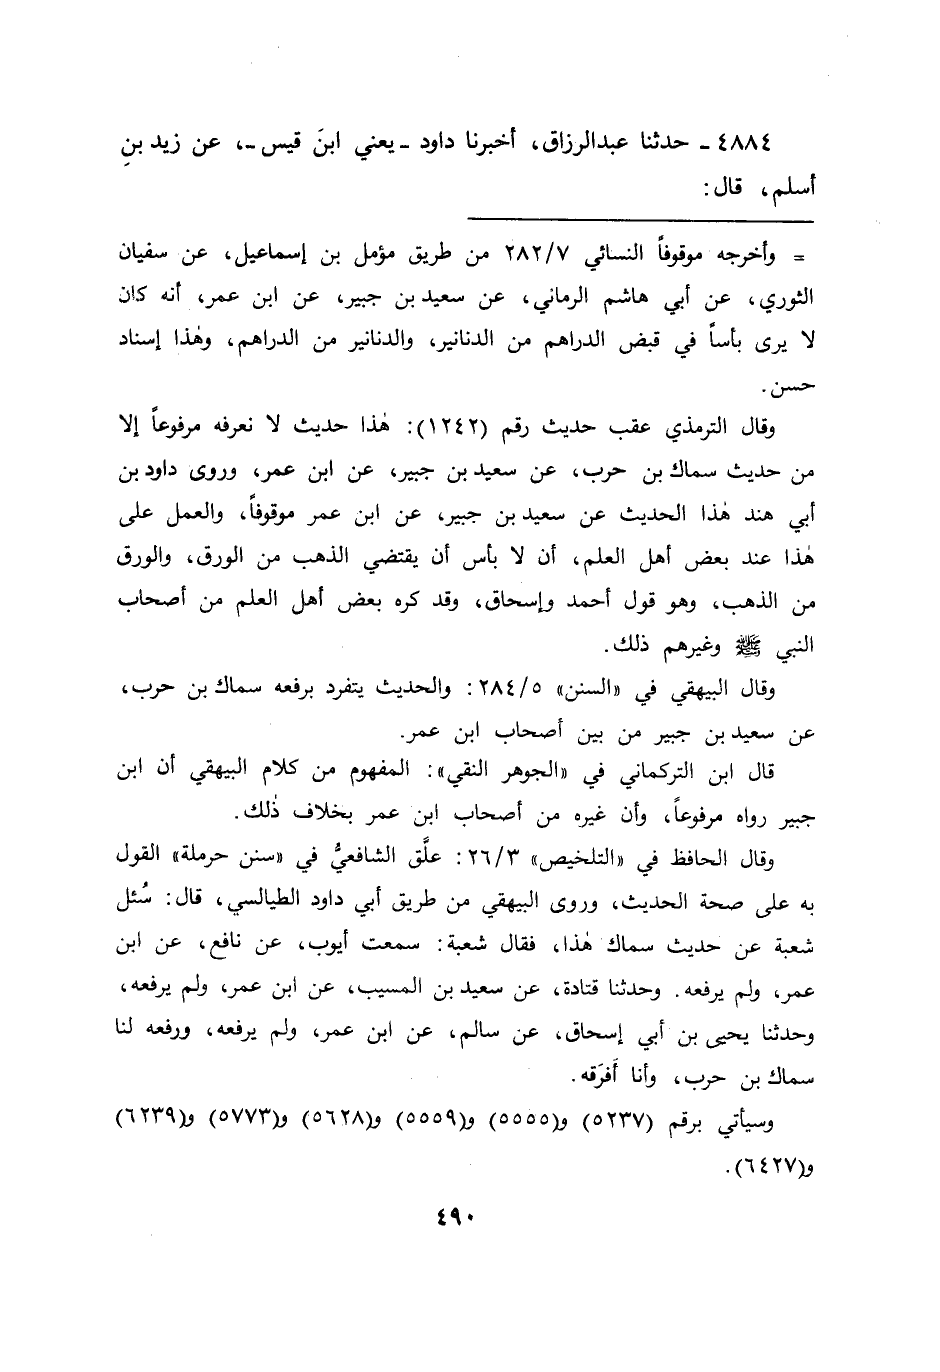 ٤٨٨٤ ـ حدثنا عبدالرزاق، أخبرنا داود ـ يعني ابنَ قيس ـ، عن زيد بنِ
أسلم، قال:
= وأخرجه موقوفاً النسائي ٢٨٢/٧ من طريق مؤمل بن إسماعيل، عن سفيان
الثوري، عن أبي هاشم الرماني، عن سعيد بن جبير، عن ابن عمر، أنه كان
لا يرى بأساً في قبض الدراهم من الدنانير، والدنانير من الدراهم، وهٰذا إسناد
حسن.
وقال الترمذي عقب حديث رقم (١٢٤٢): هٰذا حديث لا نعرفه مرفوعاً إلا
من حديث سماك بن حرب، عن سعيد بن جبير، عن ابن عمر، وروى داود بن
أبي هند هٰذا الحديث عن سعيد بن جبير، عن ابن عمر موقوفاً، والعمل على
هٰذا عند بعض أهل العلم، أن لا بأس أن يقتضي الذهب من الورق، والورق
من الذهب، وهو قول أحمد وإسحاق، وقد كره بعض أهل العلم من أصحاب
النبي ﷺ وغيرهم ذلك.
وقال البيهقي في «السنن» ٢٨٤/٥: والحديث يتفرد برفعه سماك بن حرب،
عن سعيد بن جبير من بين أصحاب ابن عمر.
قال ابن التركماني في «الجوهر النقي»: المفهوم من كلام البيهقي أن ابن
جبير رواه مرفوعاً، وأن غيره من أصحاب ابن عمر بخلاف ذٰلك.
وقال الحافظ في «التلخيص» ٢٦/٣: علَّق الشافعيُّ في «سنن حرملة» القول
به على صحة الحديث، وروى البيهقي من طريق أبي داود الطيالسي، قال: سُئل
شعبة عن حديث سماك هٰذا، فقال شعبة: سمعت أيوب، عن نافع، عن ابن
عمر، ولم يرفعه. وحدثنا قتادة، عن سعيد بن المسيب، عن ابن عمر، ولم يرفعه،
وحدثنا يحيى بن أبي إسحاق، عن سالم، عن ابن عمر، ولم يرفعه، ورفعه لنا
سماك بن حرب، وأنا أَفرَقه.
وسيأتي برقم (٥٢٣٧) و(٥٥٥٥) و(٥٥٥٩) و(٥٦٢٨) و(٥٧٧٣) و(٦٢٣٩)
و(٦٤٢٧).
٤٩٠